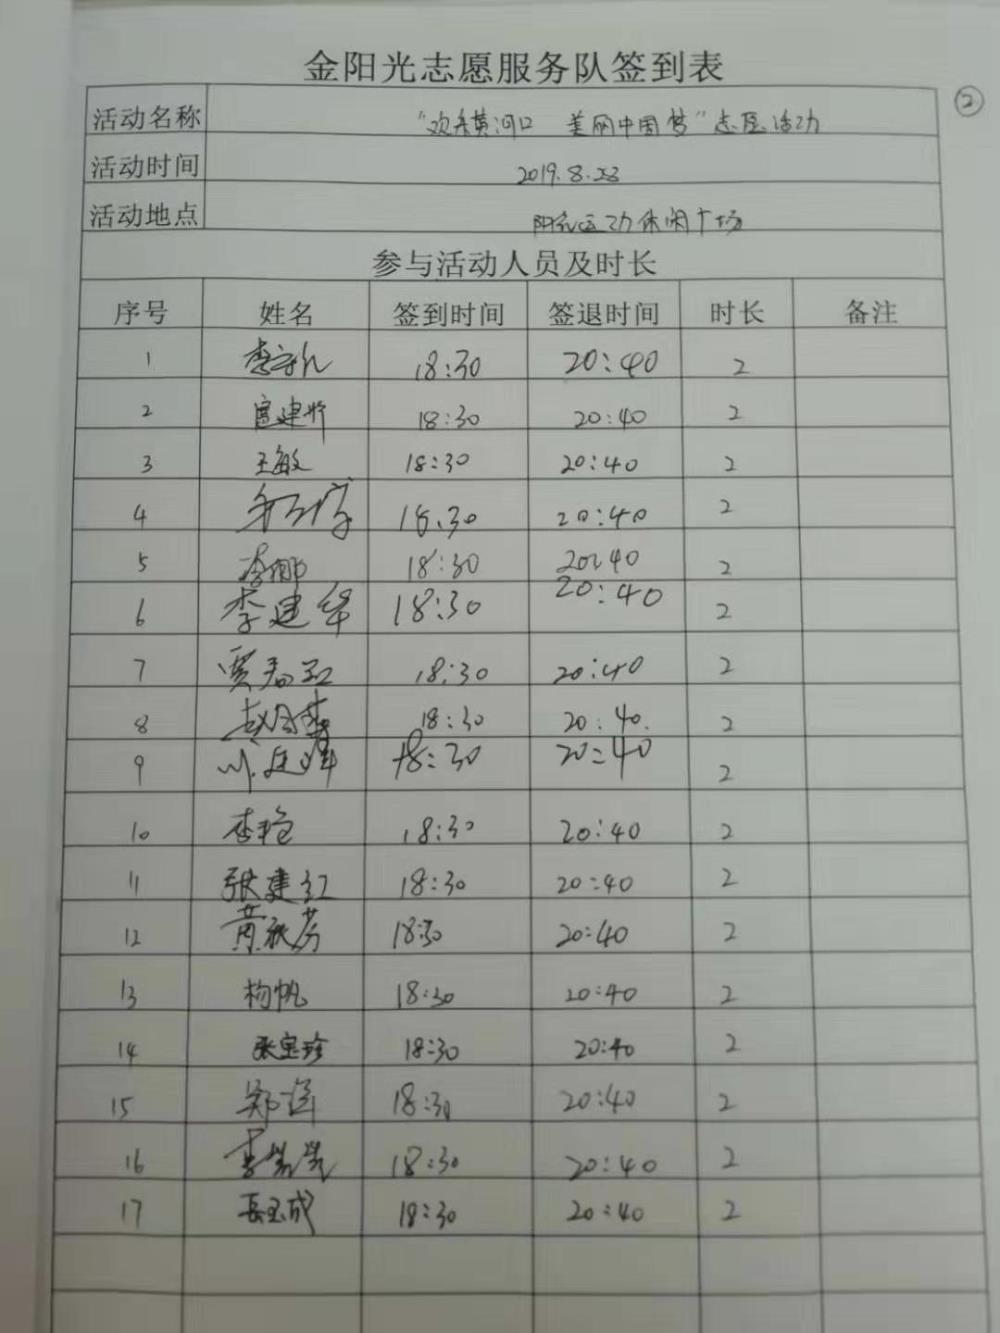 金阳光志愿服务队签到表
②
活动名称 “欢乐黄河口 美丽中国梦”志愿活动
活动时间 2019.8.23
活动地点 运动休闲广场
参与活动人员及时长
序号 姓名 签到时间 签退时间 时长 备注
1 18:30 20:40 2
2 18:30 20:40 2
3 王敏 18:30 20:40 2
4 18:30 20:40 2
5 李娜 18:30 20:40 2
6 李建华 18:30 20:40 2
7 贾春红 18:30 20:40 2
8 18:30 20:40 2
9 18:30 20:40 2
10 李艳 18:30 20:40 2
11 张建红 18:30 20:40 2
12 黄秋芬 18:30 20:40 2
13 杨帆 18:30 20:40 2
14 张宝珍 18:30 20:40 2
15 18:30 20:40 2
16 18:30 20:40 2
17 岳玉成 18:30 20:40 2